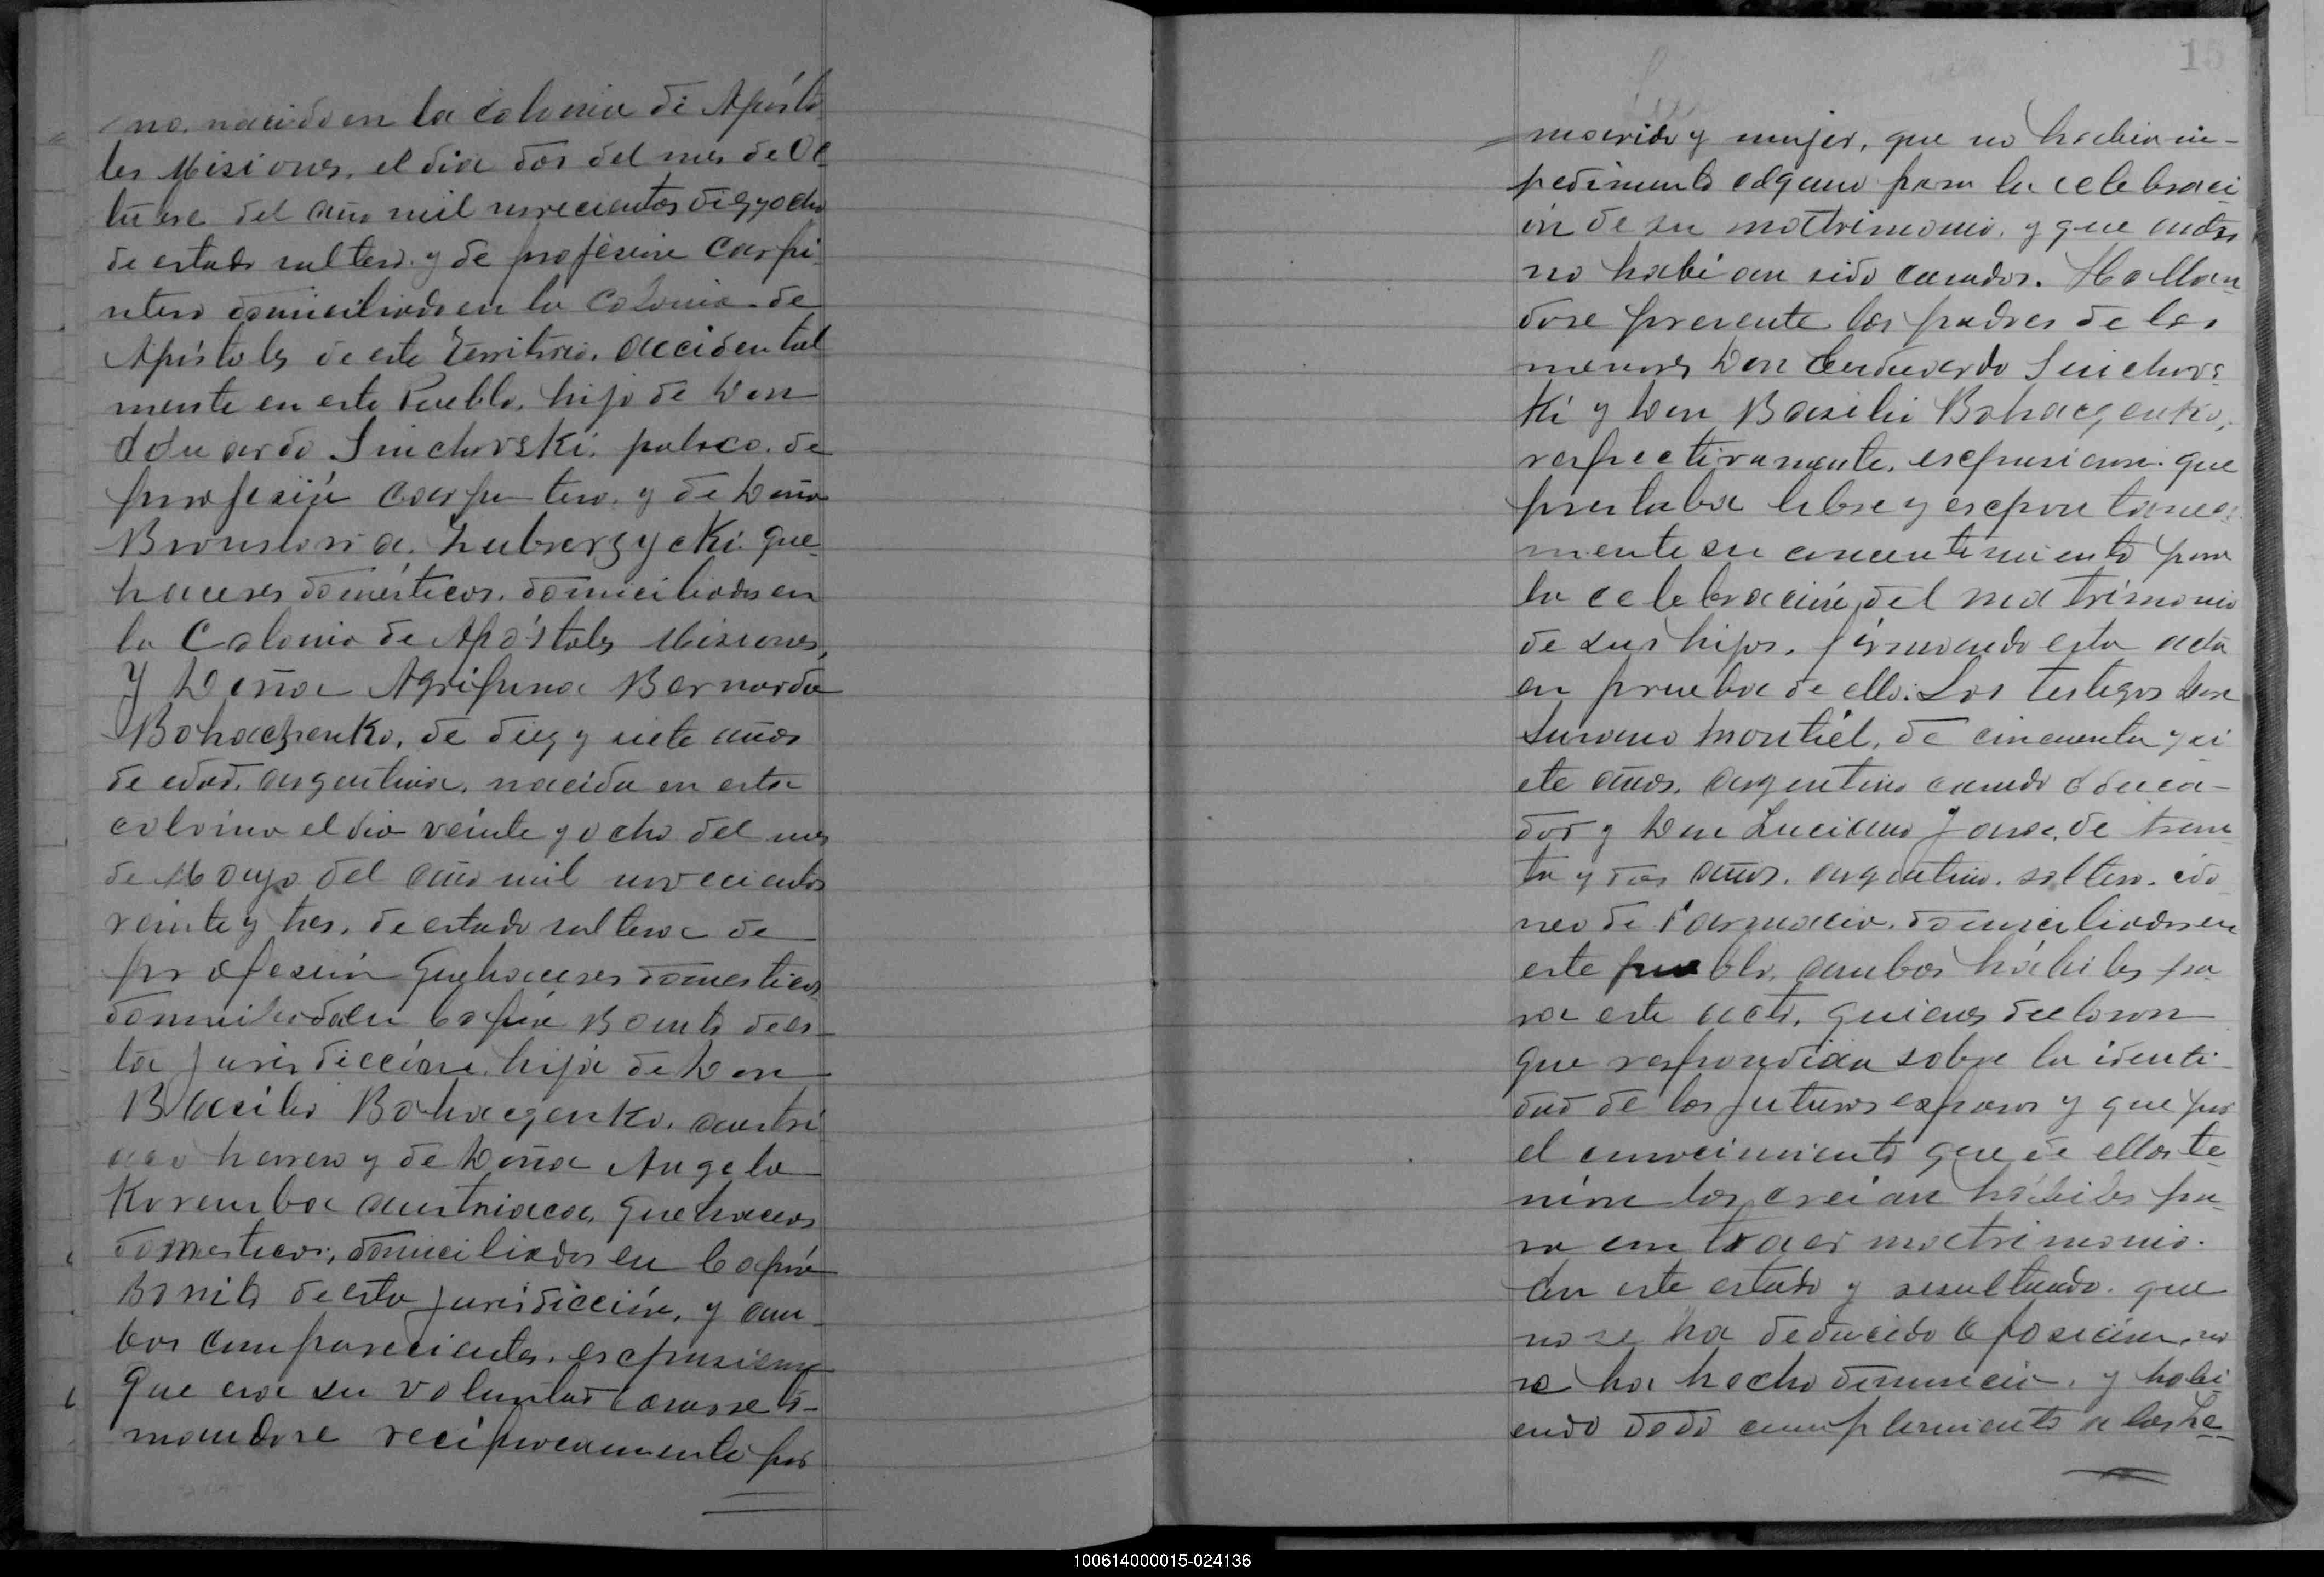 no. nacido en la Colonia de Aposto
les Misiones, el dia dos del mes de Oc
tubre del año mil novecientos diez y ocho
de estado soltero y de profesion Carpi
ntero domiciliado en la Colonia de
Apóstoles de este Territorio. accidental
mente en este Pueblo, hijo de Don
Eduardo Sinchovski, polaco. de
profesión Carpintero. y de Doña
Bronislava Zubrerzycki que
haceres domésticos. domiciliados en
la Colonia de Apóstoles Misiones,
Y Doña Agrifina Bernarda
Bohaczenko, de diez y siete años
de edad, argentina, nacida en esta
colonia el dia veinte y ocho del mes
de Mayo del año mil novecientos
veinte y tres, de estado soltera de
profesión Quehaceres domesticos
domiciliada en Capón Bonito de es-
ta Jurisdicción. hija de Don
Basilio Bohaczenko, austri
aco herrero y de Doña Angela
Koremba austriaca, quehaceres
domesticos, domiciliados en Capón
Bonito de esta jurisdicción, y am-
bos comparecientes, escpusieron
Que era su voluntad casarse to-
mandose recíprocamente por
15
marido y mujer, que no habia im-
pedimento algano para la celebraci
ón de su matrimonio. y que antes
no habían sido casados. Hallan
dose presente los padres de los
menores Don Euduardo Sinchovs
ki y Don Basilio Bohaczenko,
respectivamente, escpusieron que
prestaba libre y escpontanea
mente su concentimiento para
la celebración del matrimonio
de sus hijos, firmando esta acta
en prueba de ello. Los testigos Don
Montiél, de cincuenta y si
ete años, argentino casado educa-
dor y Don Luciano de trein
ta y dos años, argentino, soltero, idó
neo de Farmacia, domiciliados en
este pueblo, ambos hábiles pa
ra este acto, quienes declaron
que respondian sobre la identi-
dad de los futuros esposos y que por
el conocimiento que de ellos te
nían los creían hábiles pa
ra contraer matrimonio.
En este estado y resultando que
no se ha deducido oposición, ni
se ha hecho denuncia, y habi
endo dado cumplimiento a las le-
100614000015-024136